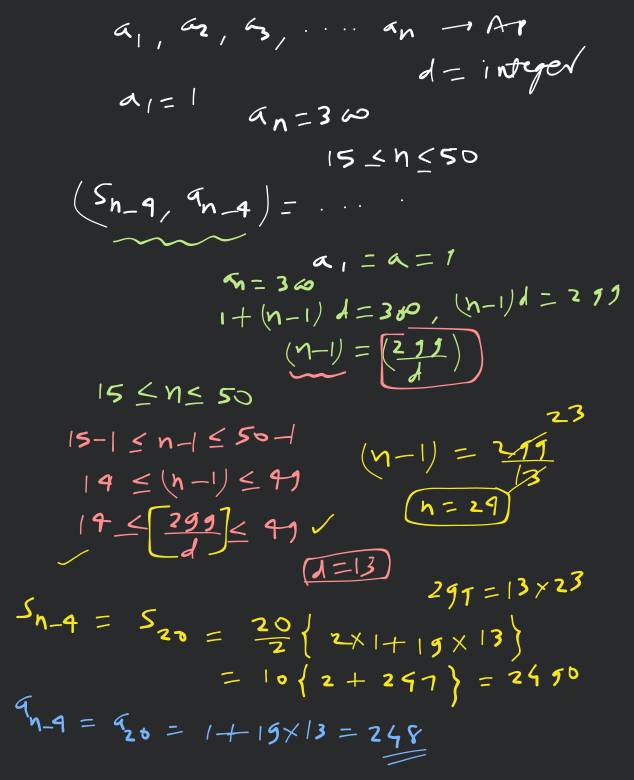 a₁, a₂, a₃, ..... aₙ → AP
d = integer
a₁ = 1
aₙ = 300
15 ≤ n ≤ 50
(Sₙ₋₄, aₙ₋₄) = .....
a₁ = a = 1
aₙ = 300
1 + (n-1) d = 300, (n-1)d = 299
(n-1) = (299/d)
15 ≤ n ≤ 50
15-1 ≤ n-1 ≤ 50-1
14 ≤ (n-1) ≤ 49
14 ≤ [299/d] ≤ 49 ✓
✓
d = 13
(n-1) = 299/13 23
n = 24
299 = 13 × 23
Sₙ₋₄ = S₂₀ = 20/2 { 2×1 + 19 × 13 }
= 10 { 2 + 247 } = 2490
aₙ₋₄ = a₂₀ = 1 + 19×13 = 248